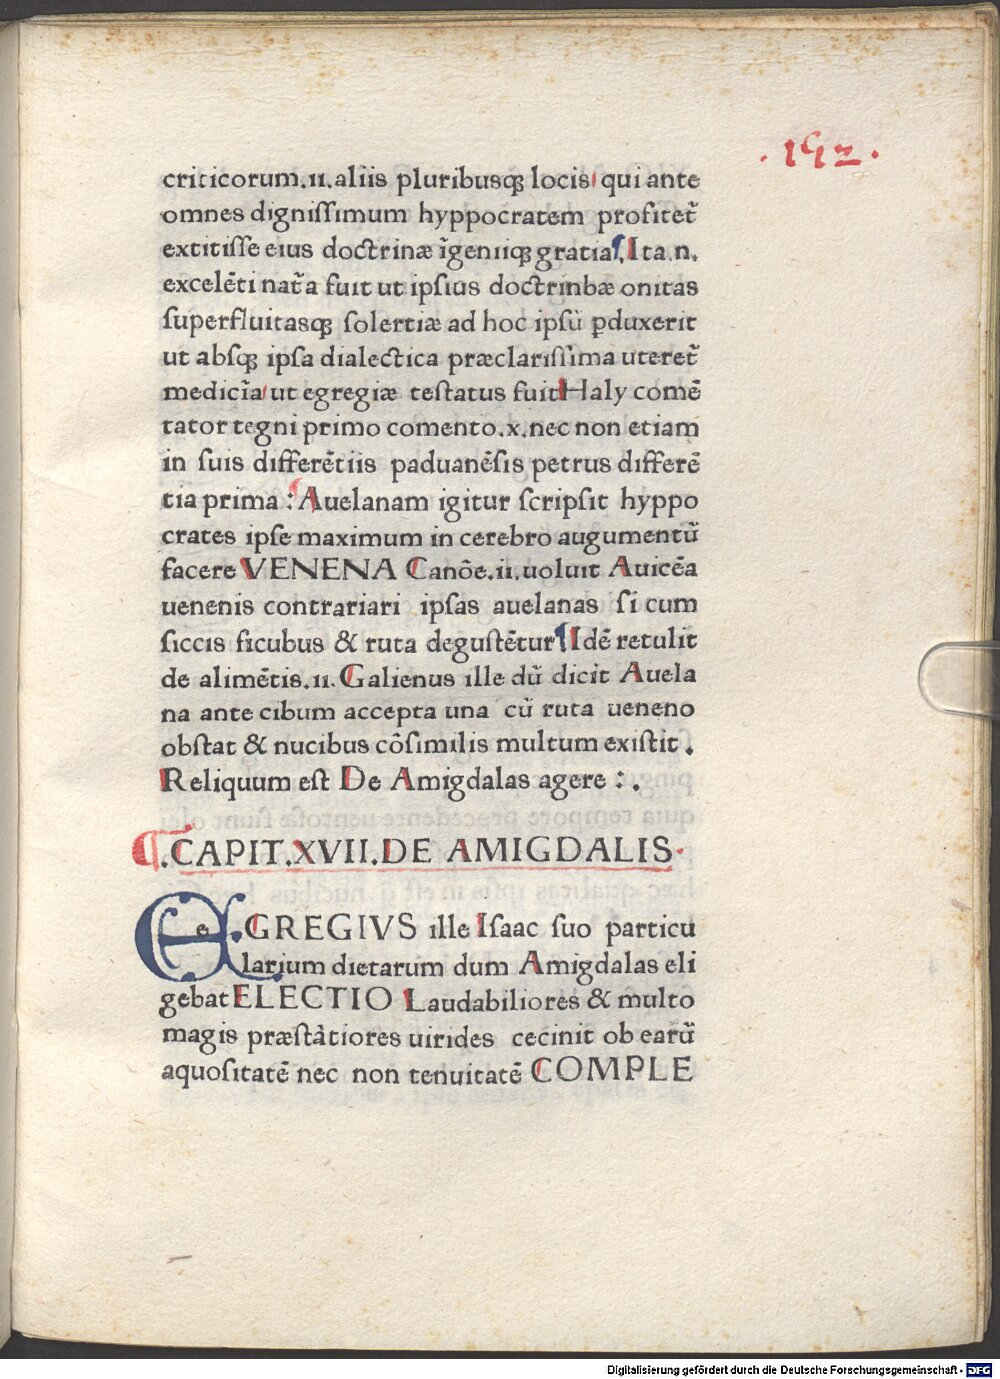 .192.
criticorum.ii.aliis pluribusqꝫ locis/ qui ante
omnes digniſſimum hyppocratem profitet᷑
extitiſſe eius doctrinæ īgeniiqꝫ gratia¶Ita.n.
excelētinat᷑a fuit ut ipſius doctrinbæ onitas
ſuperfluitasqꝫ ſolertiæ ad hoc ipſū ꝑduxerit
ut absqꝫ ipſa dialectica præclariſſima uteret᷑
medicīa/ut egregiæ teſtatus fuit Haly comē
tator tegni primo comento.x.nec non etiam
in ſuis differētiis paduanēſis petrus differē
tia prima : Auelanam igitur ſcripſit hyppo
crates ipſe maximum in cerebro augumentū
facere VENENA Canōe.ii.uoluit Auicēa
uenenis contrariari ipſas auelanas ſi cum
ſiccis ficubus & ruta deguſtētur¶Idē retulit
de alimētis.ii.Galienus ille dū dicit Auela
na ante cibum accepta una cū ruta ueneno
obſtat & nucibus cōſimilis multum exiſtit.
Reliquum eſt De Amigdalas agere :.
¶.CAPIT.XVII.DE AMIGDALIS.
EGREGIVS ille Iſaac ſuo particu
larium dietarum dum Amigdalas eli
gebat ELECTIO Laudabiliores & multo
magis præſtātiores uirides cecinit ob earū
aquoſitatē nec non tenuitatē COMPLE
Digitalisierung gefördert durch die Deutsche Forschungsgemeinschaft - DFG